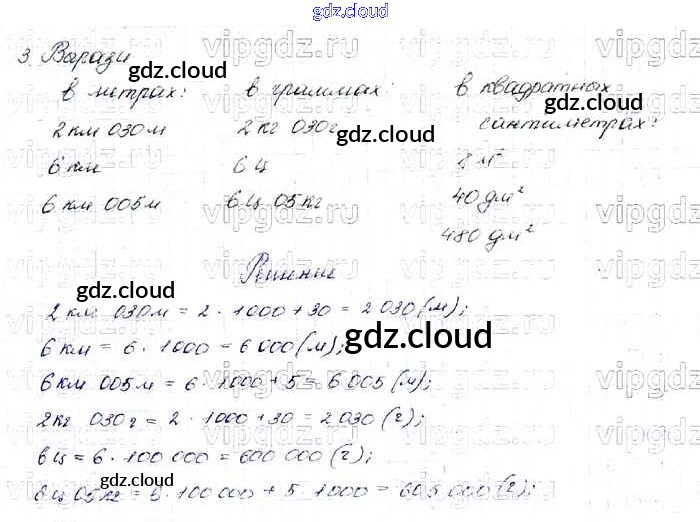 gdz.cloud
3. Вырази
gdz.cloud
в метрах: в граммах: в квадратных
gdz.cloud
2 км 030 м 2 кг 030 г сантиметрах:
gdz.cloud
6 км 6 ц 8 м²
6 км 005 м 6 ц 05 кг 40 дм²
480 дм²
Решение
gdz.cloud
2 км 030 м = 2 · 1000 + 30 = 2 030 (м);
gdz.cloud
6 км = 6 · 1000 = 6 000 (м);
6 км 005 м = 6 · 1000 + 5 = 6 005 (м);
2 кг 030 г = 2 · 1000 + 30 = 2 030 (г);
gdz.cloud
6 ц = 6 · 100 000 = 600 000 (г);
gdz.cloud
6 ц 05 кг = 6 · 100 000 + 5 · 1000 = 605 000 (г);
vipgdz.ru